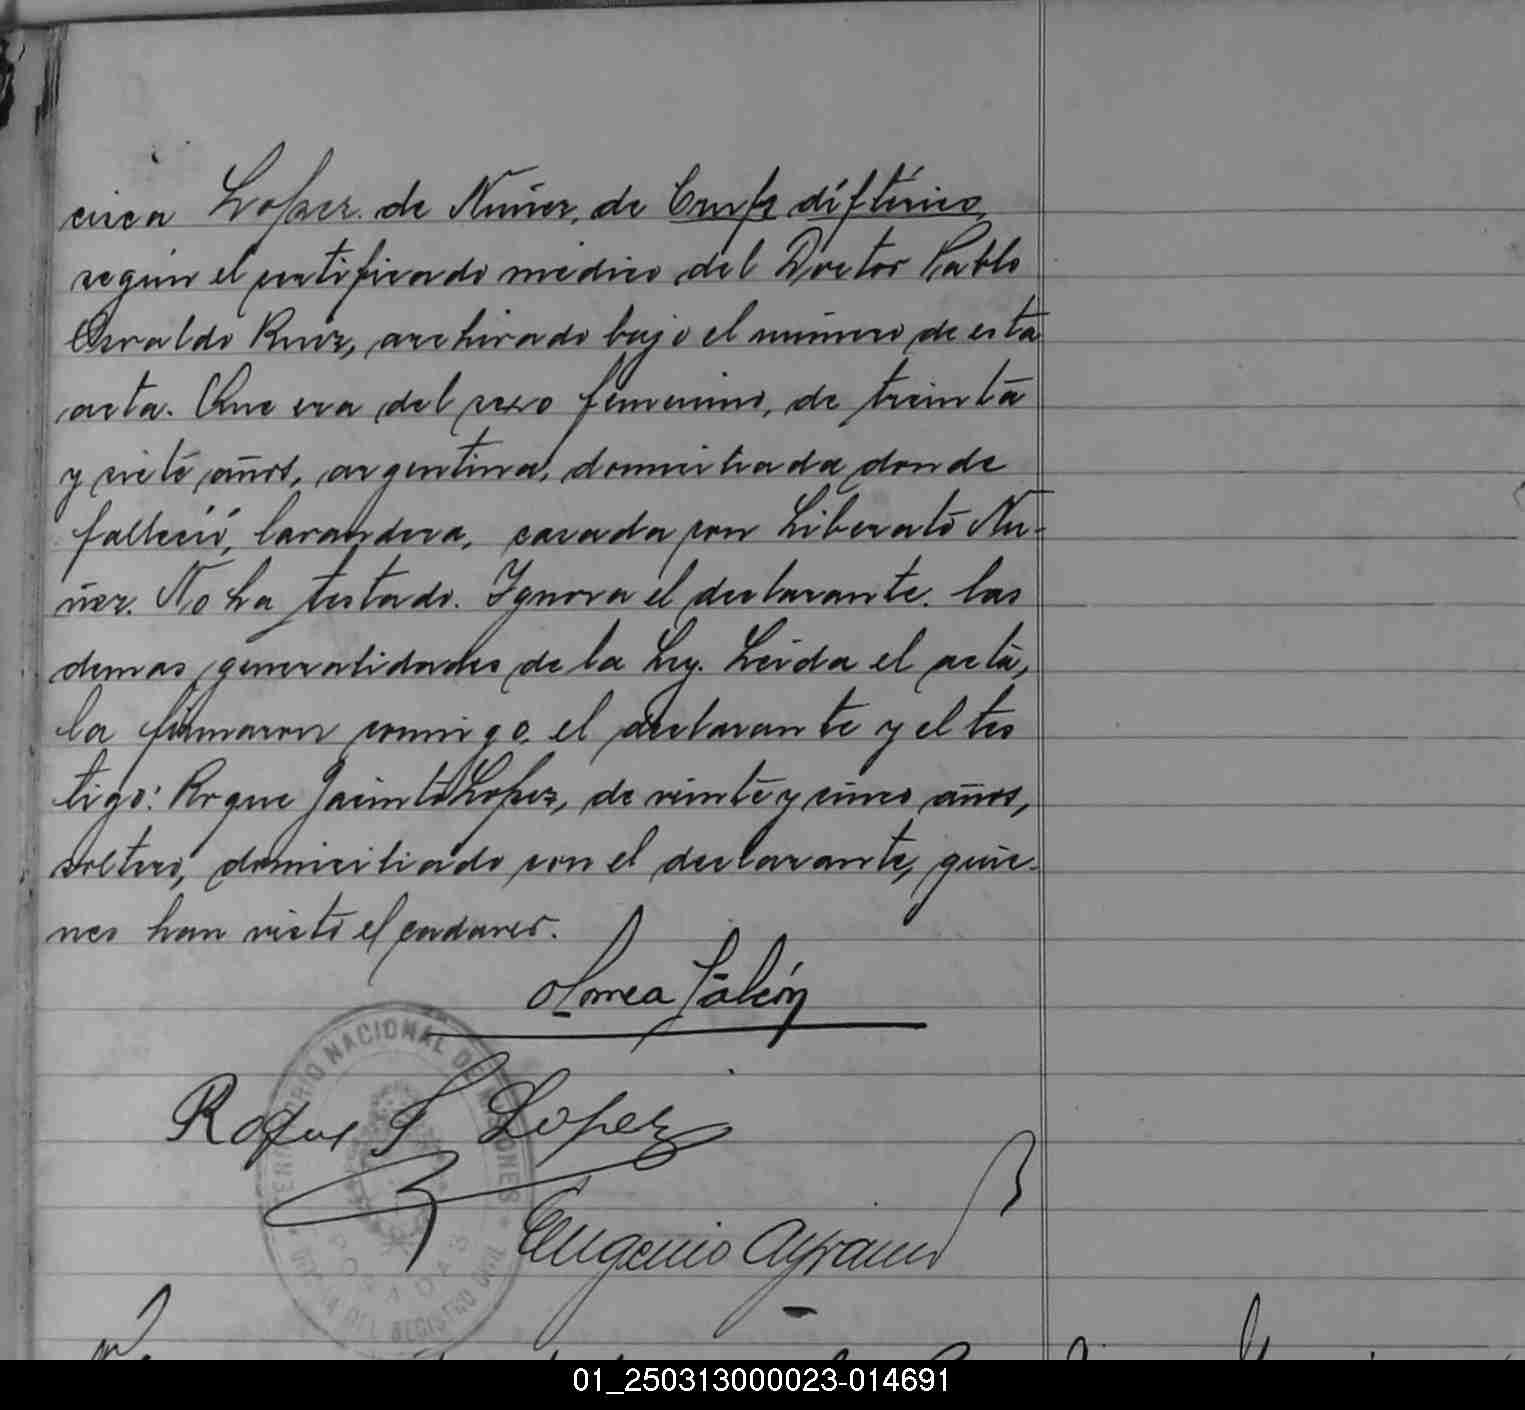 cisca Lopez de Nuñez, de Crup diftérico,
según el certificado médico del Doctor Pablo
Osvaldo Ruiz, archivado bajo el número de esta
acta. Que era del sexo femenino, de treinta
y siete años, argentina, domiciliada donde
falleció, lavandera, casada con Liberato Nu-
ñez. No ha testado. Ignora el declarante las
demas generalidades de la Ley. Leída el acta,
la firmaron conmigo el declarante y el tes
tigo: Roque Jacinto Lopez, de veinte y cinco años,
soltero, domiciliado con el declarante, quie-
nes han visto el cadaver.
Falcón
Roque J Lopez
TERRITORIO NACIONAL DE MISIONES
Eugenio
POSADAS
OFICINA DEL REGISTRO CIVIL
01_250313000023-014691